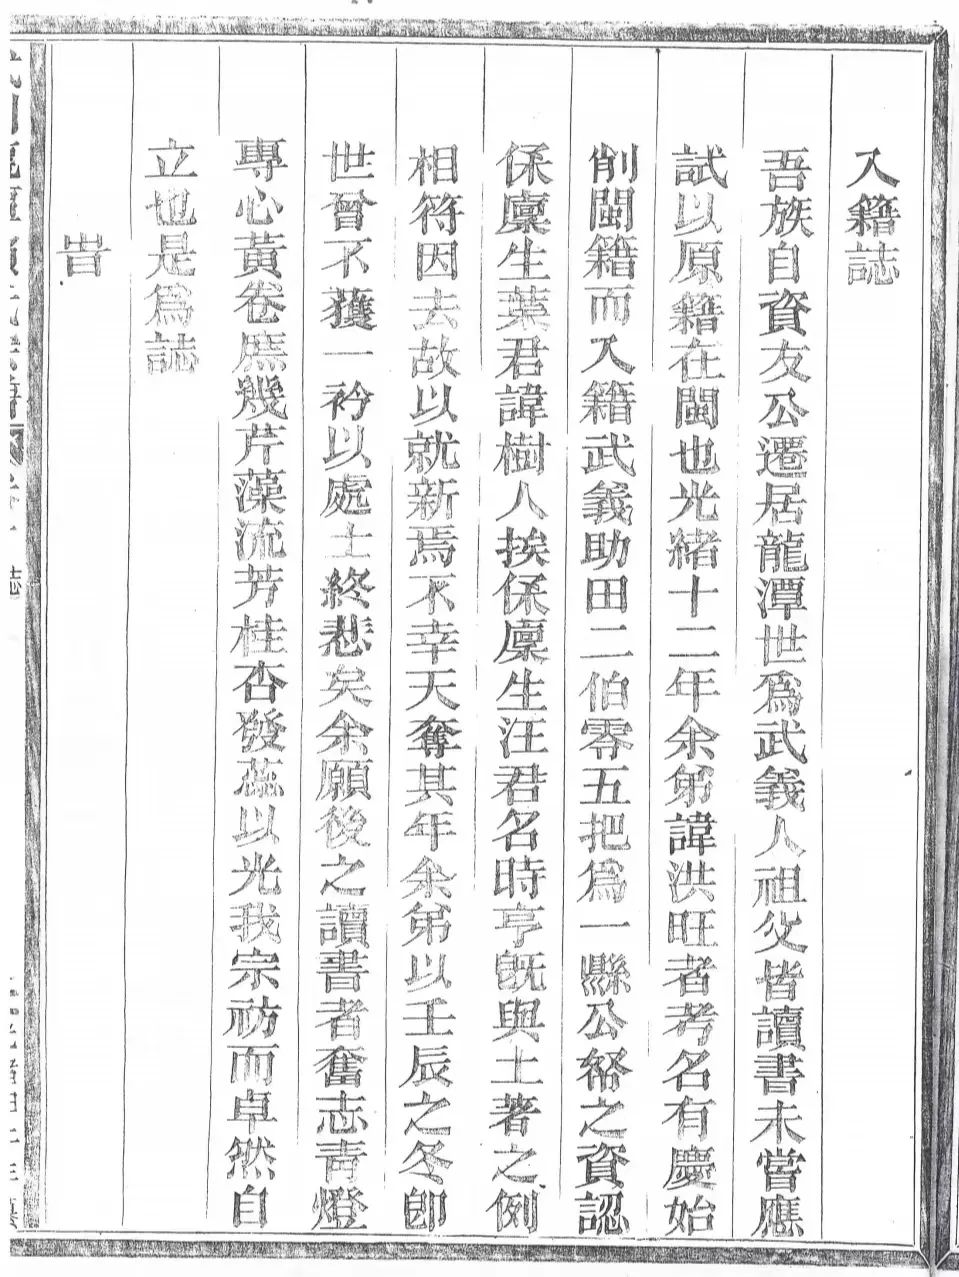 入籍誌
吾族自資友公遷居龍潭世為武義人祖父皆讀書未嘗應
試以原籍在閩也光緒十二年余弟諱洪旺者考名有慶始
削閩籍而入籍武義助田二伯零五把為一縣公帑之資認
保廩生葉君諱樹人挨保廩生汪君名時亨既與土著之例
相符因去故以就新焉不幸天奪其年余弟以壬辰之冬卽
世曾不獲一衿以處士終悲矣余願後之讀書者奮志靑燈
專心黃卷庶幾芹藻流芳桂杏發蕊以光我宗祊而卓然自
立也是為誌
旹
誌